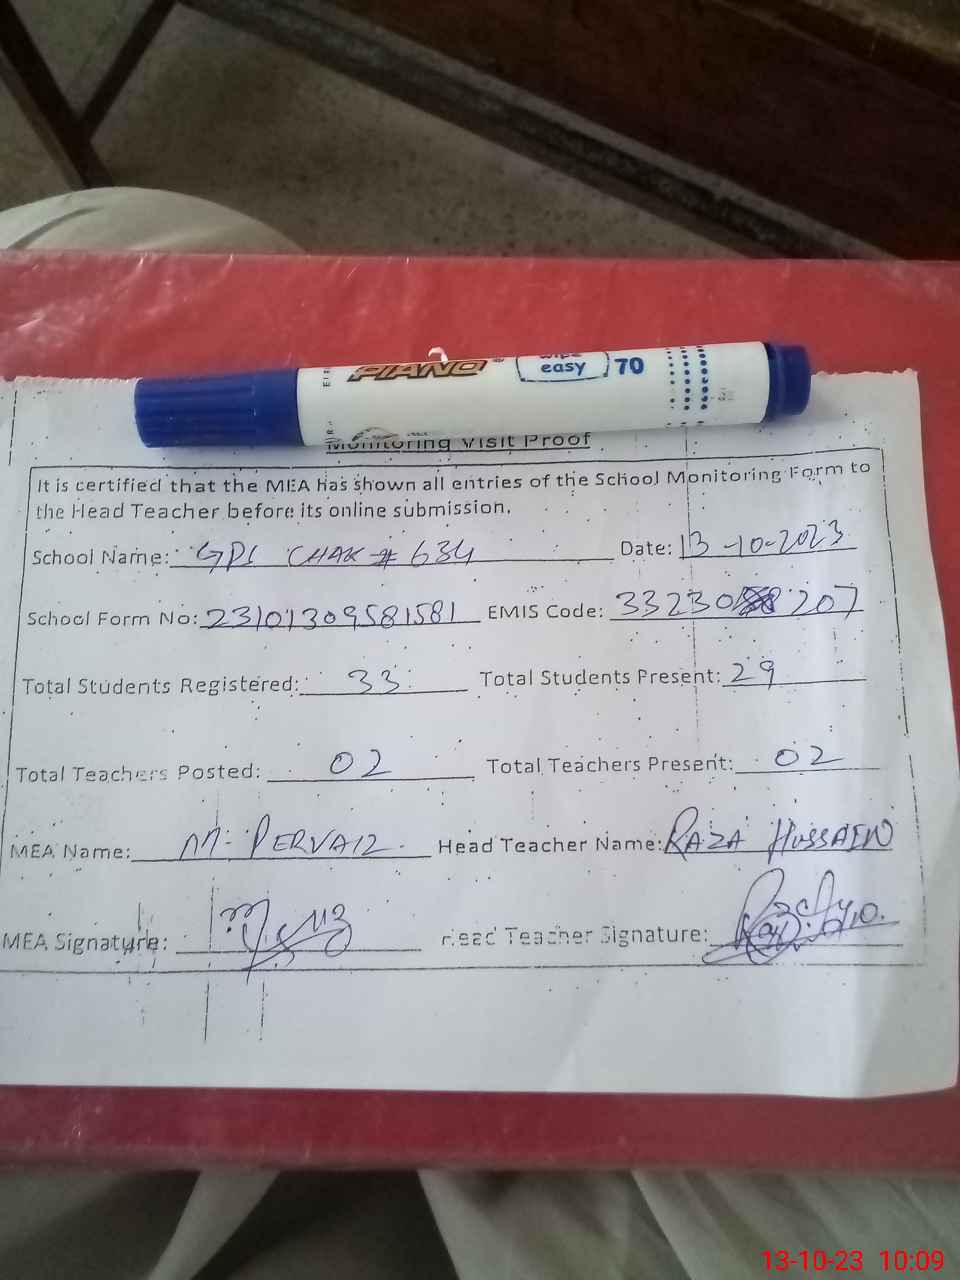 PIANO wipe easy 70
Monitoring Visit Proof
It is certified that the MEA has shown all entries of the School Monitoring Form to
the Head Teacher before its online submission.
School Name: GPS CHAK # 634 Date: 13-10-2023
School Form No: 23101309581581 EMIS Code: 33230 207
Total Students Registered: 33 Total Students Present: 29
Total Teachers Posted: 02 Total Teachers Present: 02
MEA Name: M. PERVAIZ. Head Teacher Name: RAZA HUSSAIN
MEA Signature: Head Teacher Signature:
13-10-23 10:09